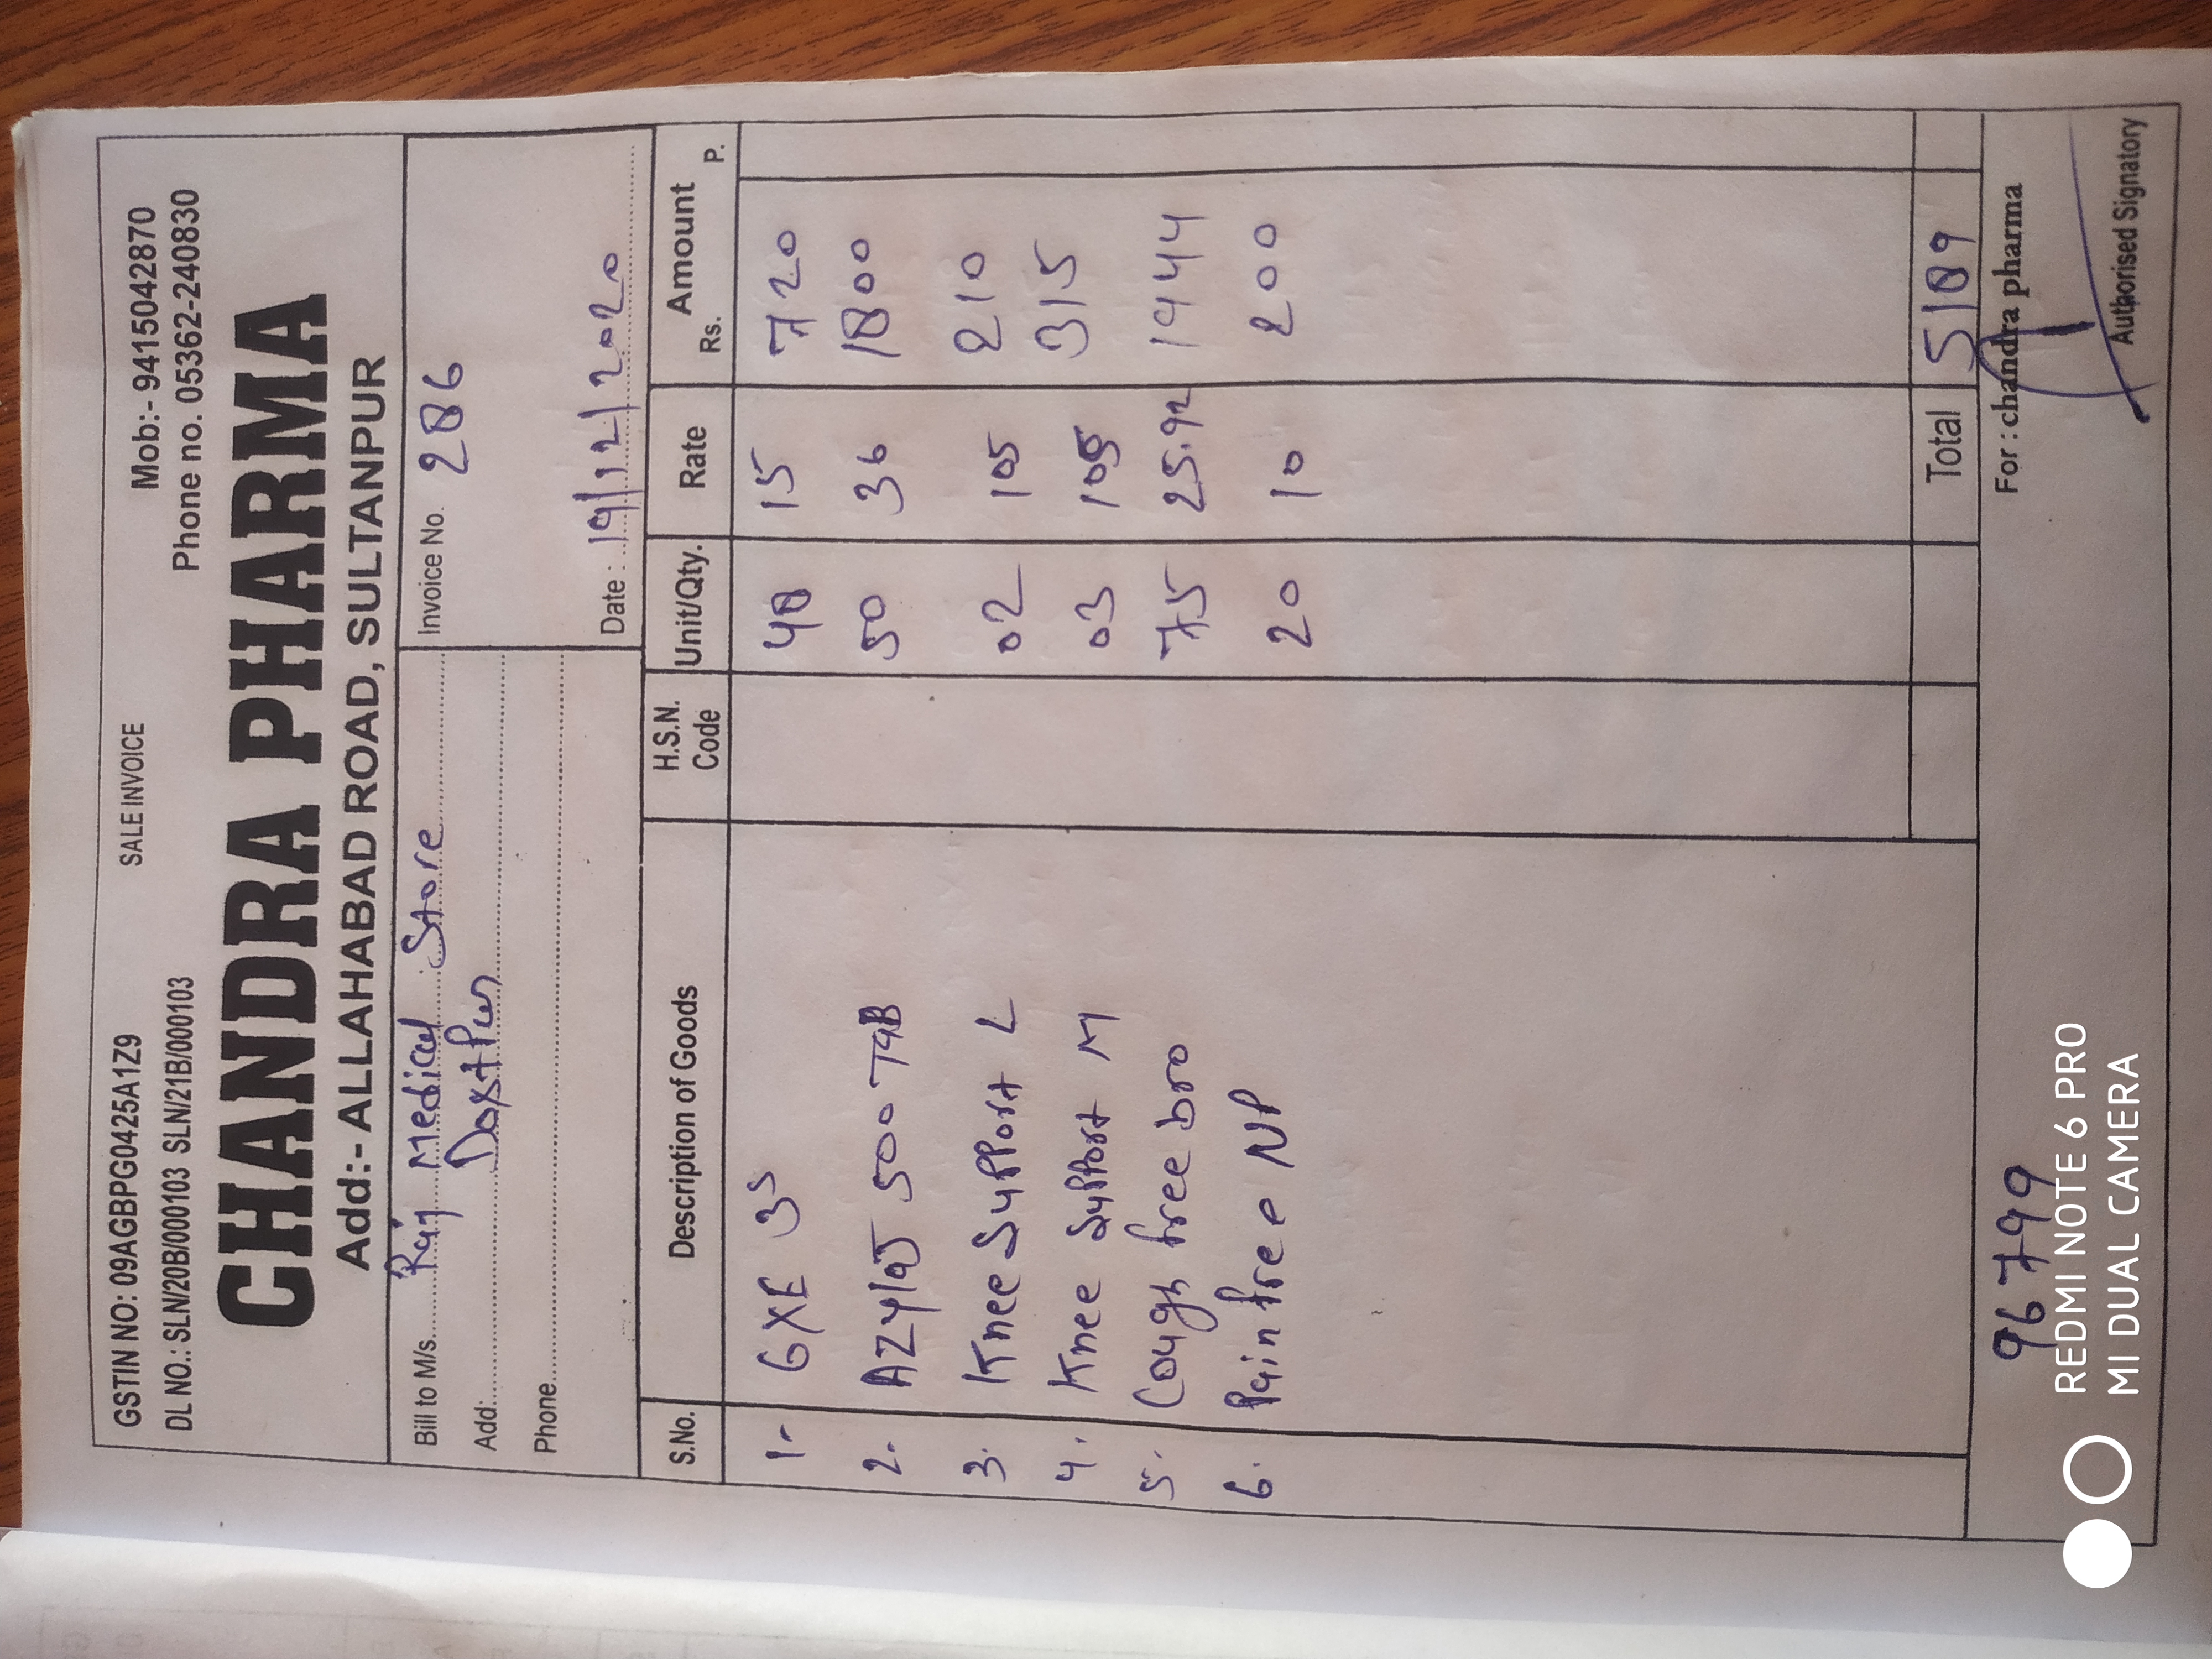 GSTIN NO: 09AGBPG0425A1Z9 SALE INVOICE Mob:- 9415042870
DL NO.: SLN/20B/000103 SLN/21B/000103 Phone no. 05362-240830
CHANDRA PHARMA
Add:- ALLAHABAD ROAD, SULTANPUR
Bill to M/s. Raj Medical Store Invoice No. 286
Add: Dostpur
Phone Date : 19/12/2020
S.No. Description of Goods H.S.N. Code Unit/Qty. Rate Amount Rs. P.
1- GXE 3s 48 15 720
2. 500 TAB 50 36 1800
3. Knee Support L 02 105 210
4. Knee Support M 03 105 315
5. Cough free bro 75 25.92 1944
6. Pain free NP 20 10 200
Total 5189
96799 For : chandra pharma
Authorised Signatory
REDMI NOTE 6 PRO
MI DUAL CAMERA